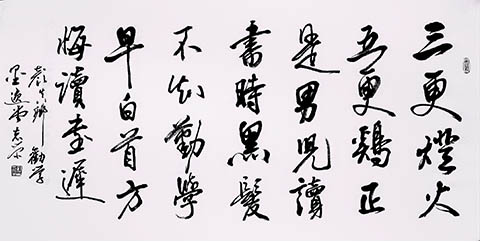 三更燈火
五更鷄正
是男兒讀
書時黑髮
不知勤學
早白首方
悔讀書遲
顏真卿 勸學
墨